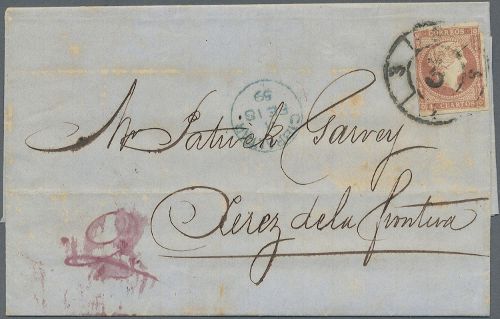 CORREOS
4 CUARTOS
3
59
Mr Patrick Garvey
Xerez de la frontera